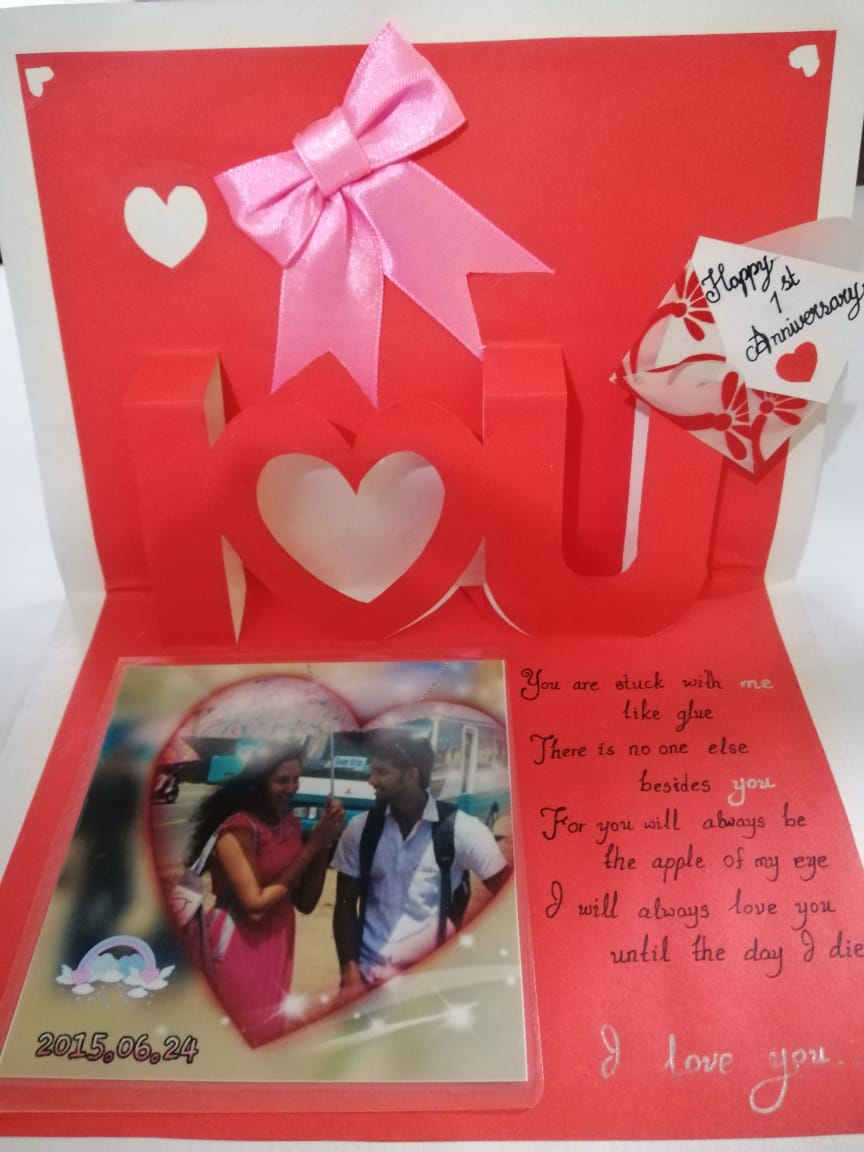 Happy
1st
Anniversary
I U
You are stuck with me
like glue
There is no one else
besides you
For you will always be
the apple of my eye
I will always love you
until the day I die
I love you.
2015.06.24